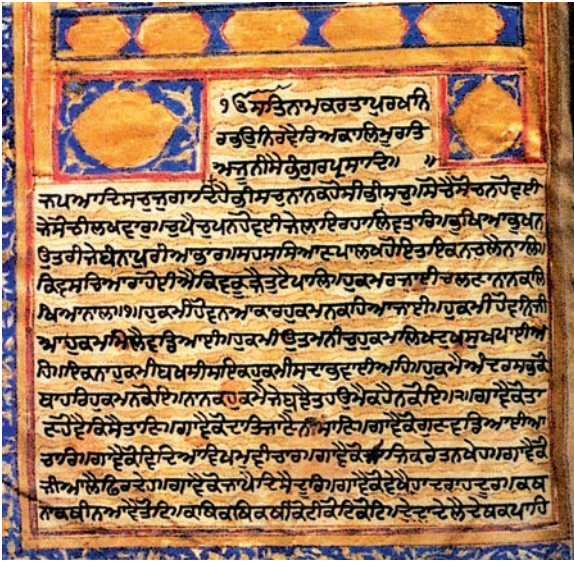 ੴਸਤਿਨਾਮਕਰਤਾਪੁਰਖਨਿ
ਰਭਉਨਿਰਵੈਰਿਅਕਾਲਿਮੂਰਤਿ
ਅਜੂਨੀਸੈਭੰਗੁਰਪ੍ਰਸਾਦਿ॥ ॥
ਜਪਆਦਿਸਚੁਜੁਗਾਦਿਹੈਭੀਸਚੁਨਾਨਕਹੋਸੀਭੀਸਚੁ॥ਸੋਚੈਸੋਚਨਹੋਵਈ
ਜੇਸੋਚੀਲਖਵਾਰ॥ਚੁਪੈਚੁਪਨਹੋਵਈਜੇਲਾਇਰਹਾਲਿਵਤਾਰ॥ਭੁਖਿਆਭੁਖਨ
ਉਤਰੀਜੇਬੰਨਾਪੁਰੀਆਭਾਰ॥ਸਹਸਸਿਆਣਪਾਲਖਹੋਇਤਇਕਨਚਲੈਨਾਲਿ॥
ਕਿਵਸਚਿਆਰਾਹੋਈਐਕਿਵਕੂੜੈਤੁਟੈਪਾਲਿ॥ਹੁਕਮਰਜਾਈਚਲਣਾਨਾਨਕਲਿ
ਖਿਆਨਾਲ॥੧॥ਹੁਕਮੀਹੋਵਨਆਕਾਰਹੁਕਮਨਕਹਿਆਜਾਈ॥ਹੁਕਮੀਹੋਵਨਿਜੀ
ਆਹੁਕਮਮਿਲੈਵਡਿਆਈ॥ਹੁਕਮੀਉਤਮਨੀਚੁਹੁਕਮਲਿਖਦੁਖਸੁਖਪਾਈਅ
ਹਿ॥ਇਕਨਾਹੁਕਮੀਬਖਸੀਸਇਕਹੁਕਮੀਸਦਾਭਵਾਈਅਹਿ॥ਹੁਕਮੈਅੰਦਰਸਭਕੋ
ਬਾਹਰਿਹੁਕਮਨਕੋਇ॥ਨਾਨਕਹੁਕਮੈਜੇਬੁਝੈਤਹਉਮੈਕਹੈਨਕੋਇ॥੨॥ਗਾਵੈਕੋਤਾ
ਣਹੋਵੈਕਿਸੈਤਾਣਿ॥ਗਾਵੈਕੋਦਾਤਿਜਾਣੈਨੀਸਾਣਿ॥ਗਾਵੈਕੋਗੁਣਵਡਿਆਈਆ
ਚਾਰ॥ਗਾਵੈਕੋਵਿਦਿਆਵਿਖਮੁਵੀਚਾਰ॥ਗਾਵੈਕੋਸਾਜਿਕਰੇਤਨਖੇਹ॥ਗਾਵੈਕੋ
ਜੀਆਲੈਫਿਰਦੇਹ॥ਗਾਵੈਕੋਜਾਪੈਦਿਸੈਦੂਰਿ॥ਗਾਵੈਕੋਵੇਖੈਹਾਦਰਾਹਦੂਰ॥ਕਥ
ਨਾਕਥੀਨਆਵੈਤੋਟਿ॥ਕਥਿਕਥਿਕਥੀਕੋਟੀਕੋਟਿਕੋਟਿ॥ਦੇਦਾਦੇਲੈਦੇਥਕਪਾਹਿ